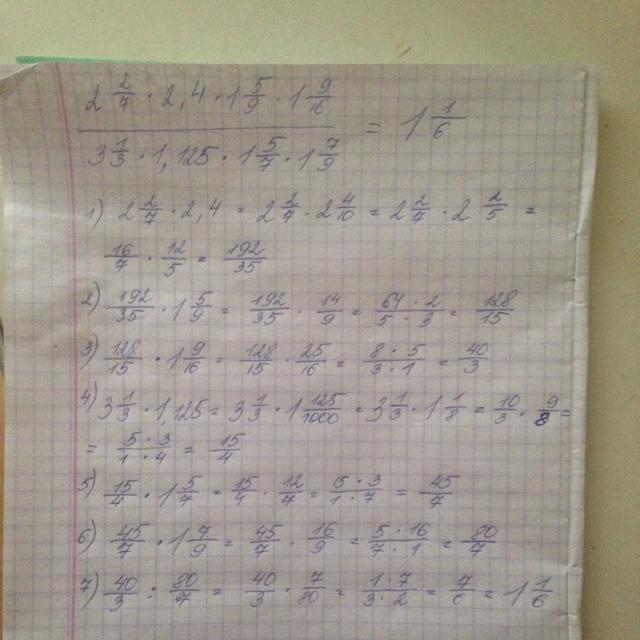 (2 2/7 · 2,4 · 1 5/9 · 1 9/16) / (3 1/3 · 1,125 · 1 5/7 · 1 7/9) = 1 1/6
1) 2 2/7 · 2,4 = 2 2/7 · 2 4/10 = 2 2/7 · 2 2/5 =
16/7 · 12/5 = 192/35
2) 192/35 · 1 5/9 = 192/35 · 14/9 = (64 · 2)/(5 · 3) = 128/15
3) 128/15 · 1 9/16 = 128/15 · 25/16 = (8 · 5)/(3 · 1) = 40/3
4) 3 1/3 · 1,125 = 3 1/3 · 1 125/1000 = 3 1/3 · 1 1/8 = 10/3 · 9/8 =
= (5 · 3)/(1 · 4) = 15/4
5) 15/4 · 1 5/7 = 15/4 · 12/7 = (5 · 3)/(1 · 7) = 45/7
6) 45/7 · 1 7/9 = 45/7 · 16/9 = (5 · 16)/(7 · 1) = 80/7
7) 40/3 : 80/7 = 40/3 · 7/80 = (1 · 7)/(3 · 2) = 7/6 = 1 1/6